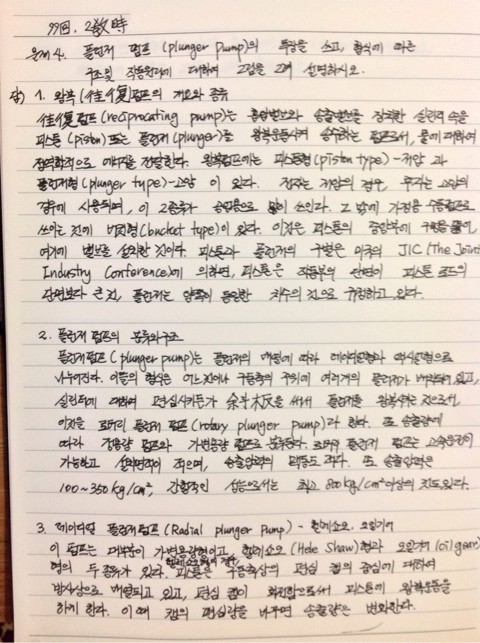 99回. 2教時
문제 4. 플런저 펌프 (plunger pump)의 특징을 쓰고, 형식에 따른
구조 및 작동원리에 대하여 그림을 그려 설명하시오.
답) 1. 왕복(往復)펌프의 개요와 종류
往復펌프(reciprocating pump)는 흡입밸브와 송출밸브를 장치한 실린더 속을
피스톤(piston) 또는 플런저(plunger)를 왕복운동시켜 송수하는 펌프로서, 물에 대하여
정역학적으로 에너지를 전달한다. 왕복펌프에는 피스톤형(piston type) - 저압 과
플런저형(plunger type) - 고압 이 있다. 전자는 저압의 경우, 후자는 고압의
경우에 사용되며, 이 2종류가 공업용으로 많이 쓰인다. 그 밖에 가정용 수동펌프로
쓰이는 것에 버킷형(bucket type)이 있다. 이것은 피스톤의 중앙부에 구멍을 뚫어,
여기에 밸브를 설치한 것이다. 피스톤과 플런저의 구별은 미국의 JIC (The Joint
Industry Conference)에 의하면, 피스톤은 작동부의 단면이 피스톤 로드의
단면보다 큰 것, 플런저는 양쪽이 동일한 치수의 것으로 규정하고 있다.
2. 플런저 펌프의 분류와 구조
플런저펌프( plunger pump)는 플런저의 배열에 따라 레이디얼형과 액시얼형으로
나누어진다. 이들의 형식은 어느 것이나 구동축의 주위에 여러개의 플런저가 배치되어 있고,
실린더에 대하여 편심시키든가 斜板을 써서 플런저를 왕복시키는 것으로서,
이것을 로터리 플런저 펌프 (rotary plunger pump)라 한다. 또 송출량에
따라 정용량 펌프와 가변용량 펌프로 분류된다. 로터리 플런저 펌프는 고속운전이
가능하고 설치면적이 적으며, 송출압력의 맥동도 적다. 또 송출압력은
100~350 kg/cm², 간헐적인 성능으로서는 최고 800 kg/cm² 이상의 것도 있다.
3. 레이디얼 플런저 펌프 (Radial plunger pump) - 헬레쇼오, 오일기어
이 펌프는 대부분이 가변용량형이고, 헬레쇼오 (Hele Shaw)형과 오일기어 (oil gear)
형의 두 종류가 있다. 피스톤은 구동축상의 편심 캠의 중심에 대하여
방사상으로 배열되고 있고, 편심 캠이 회전함으로써 피스톤에 왕복운동을
하게 한다. 이 때 캠의 편심량을 바꾸면 송출량은 변화한다.